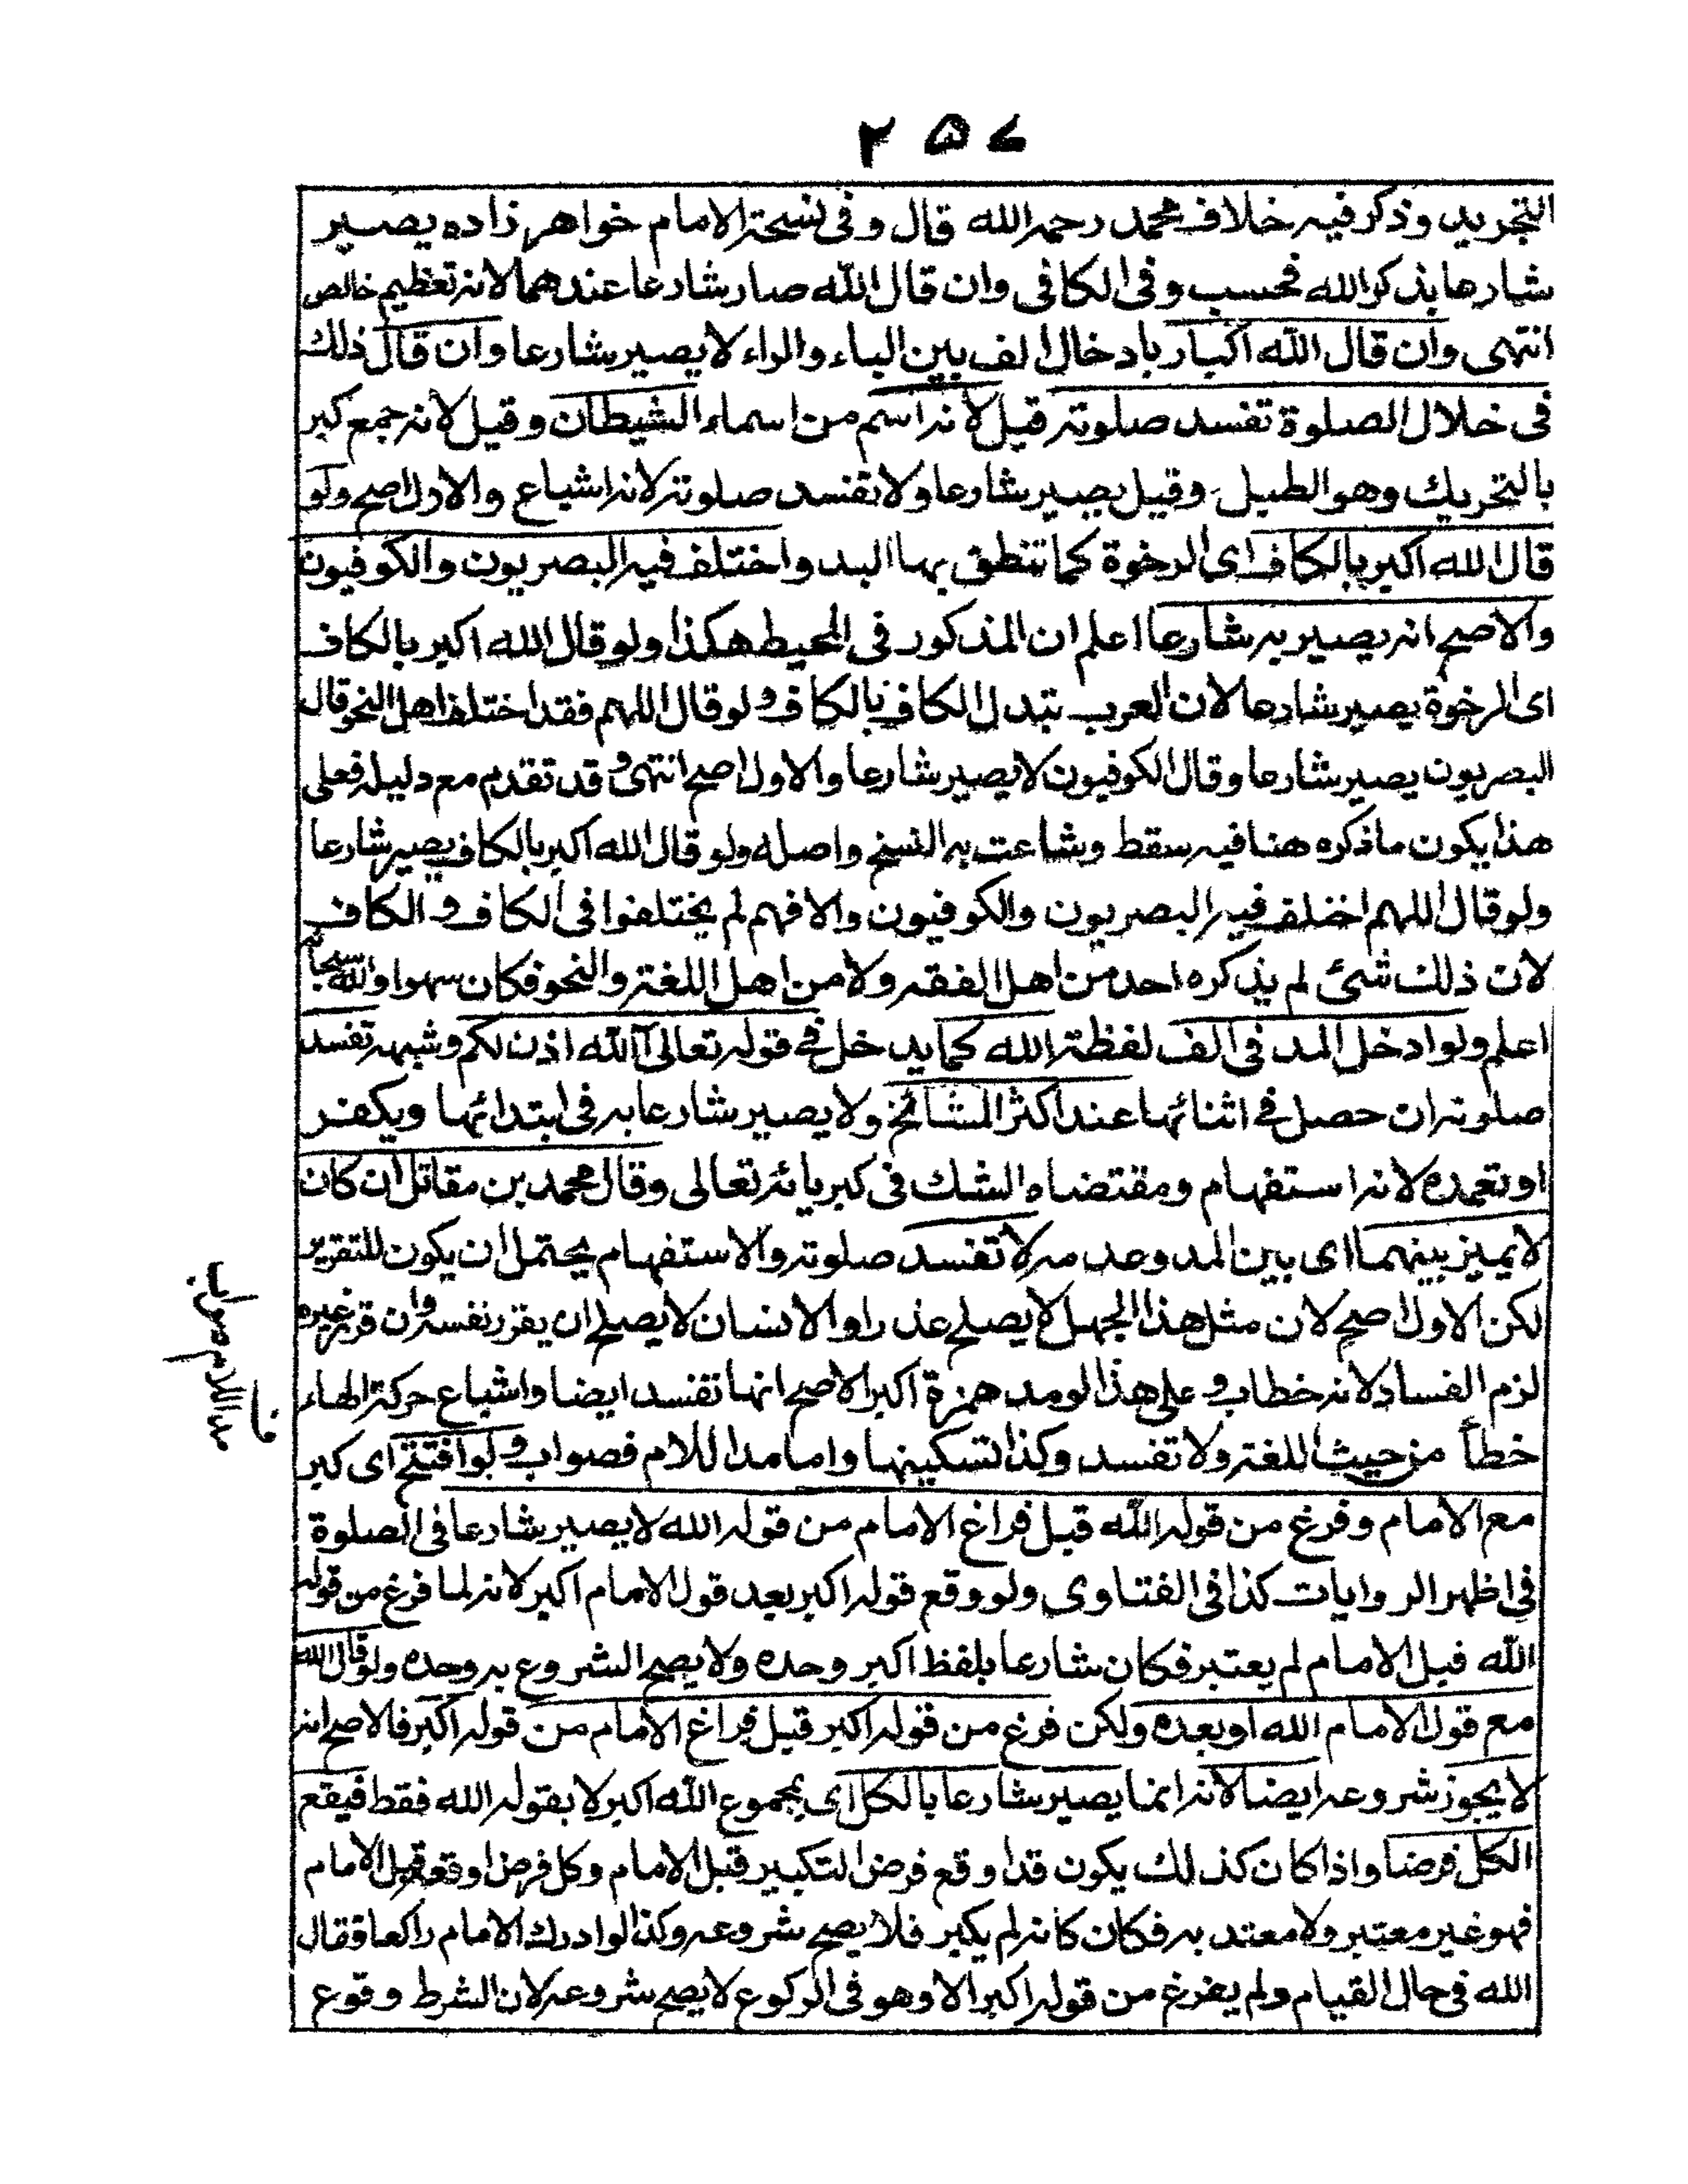 ٢٥٨
التجريد وذكر فيه خلاف محمد رحمه الله قال وفى نسخة الامام خواهر زاده يصير
شارعا بذكر الله فحسب وفى الكافى وان قال الله صار شارعا عندهما لانه تعظيم خالص
انتهى وان قال الله اكبار بادخال الف بين الباء والراء لا يصير شارعا وان قال ذلك
فى خلال الصلوة تفسد صلوته قيل لانه اسم من اسماء الشيطان وقيل لانه جمع كبر
بالتحريك وهو الطبل وقيل يصير شارعا ولا تفسد صلوته لانه اشباع والاول اصح ولو
قال الله اكبر بالكاف اى الرخوة كما تنطق بها البد واختلف فيه البصريون والكوفيون
والاصح انه يصير به شارعا اعلم ان المذكور فى المحيط هكذا ولو قال الله اكبر بالكاف
اى الرخوة يصير شارعا لان العرب تبدل الكاف بالكاف ولو قال اللهم فقد اختلف اهل النحو قال
البصريون يصير شارعا وقال الكوفيون لا يصير شارعا والاول اصح انتهى وقد تقدم مع دليله فعلى
هذا يكون ما ذكره هنا فيه سقط وشاعت به النسخ واصله ولو قال الله اكبر بالكاف يصير شارعا
ولو قال اللهم اختلف فيه البصريون والكوفيون والا فهم لم يختلفوا فى الكاف والكاف
لان ذلك شئ لم يذكره احد من اهل الفقه ولا من اهل اللغة والنحو فكان سهوا والله سبحانه
اعلم ولو ادخل المد فى الف لفظة الله كما يدخل فى قوله تعالى آلله اذن لكم وشبهه تفسد
صلوته ان حصل فى اثنائها عند اكثر المشائخ ولا يصير شارعا به فى ابتدائها ويكفر
او تعمده لانه استفهام ومقتضاه الشك فى كبريائه تعالى وقال محمد بن مقاتل ان كان
لا يميز بينهما اى بين المد وعدمه لا تفسد صلوته والاستفهام يحتمل ان يكون للتقرير
لكن الاول اصح لان مثل هذا الجهل لا يصلح عذرا والانسان لا يصلح ان يقرر نفسه وان قرر غيره
لزم الفساد لانه خطاب وعلى هذا لو مد همزة اكبر الاصح انها تفسد ايضا واشباع حركة الهاء
خطأ من حيث اللغة ولا تفسد وكذا تسكينها واما مد اللام فصواب ولو افتتح اى كبر
مع الامام وفرغ من قوله الله قبل فراغ الامام من قوله الله لا يصير شارعا فى الصلوة
فى اظهر الروايات كذا فى الفتاوى ولو وقع قوله اكبر بعد قول الامام اكبر لانه لما فرغ من قوله
الله قبل الامام لم يعتبر فكان شارعا بلفظ اكبر وحده ولا يصح الشروع به وحده ولو قال الله
مع قول الامام الله او بعده ولكن فرغ من قوله اكبر قبل فراغ الامام من قوله اكبر فالاصح انه
لا يجوز شروعه ايضا لانه انما يصير شارعا بالكل اى بمجموع الله اكبر لا بقوله الله فقط فيقع
الكل فرضا واذا كان كذلك يكون قد اوقع فرض التكبير قبل الامام وكل فرض اوقعه قبل الامام
فهو غير معتبر ولا معتد به فكان كانه لم يكبر فلا يصح شروعه وكذا لو ادرك الامام راكعا فقال
الله فى حال القيام ولم يفرغ من قوله اكبر الا وهو فى الركوع لا يصح شروعه لان الشرط وقوع
مد اللام صواب